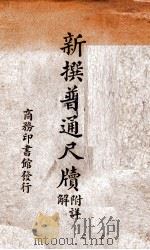 新撰普通尺牘
附詳解
商務印書館發行